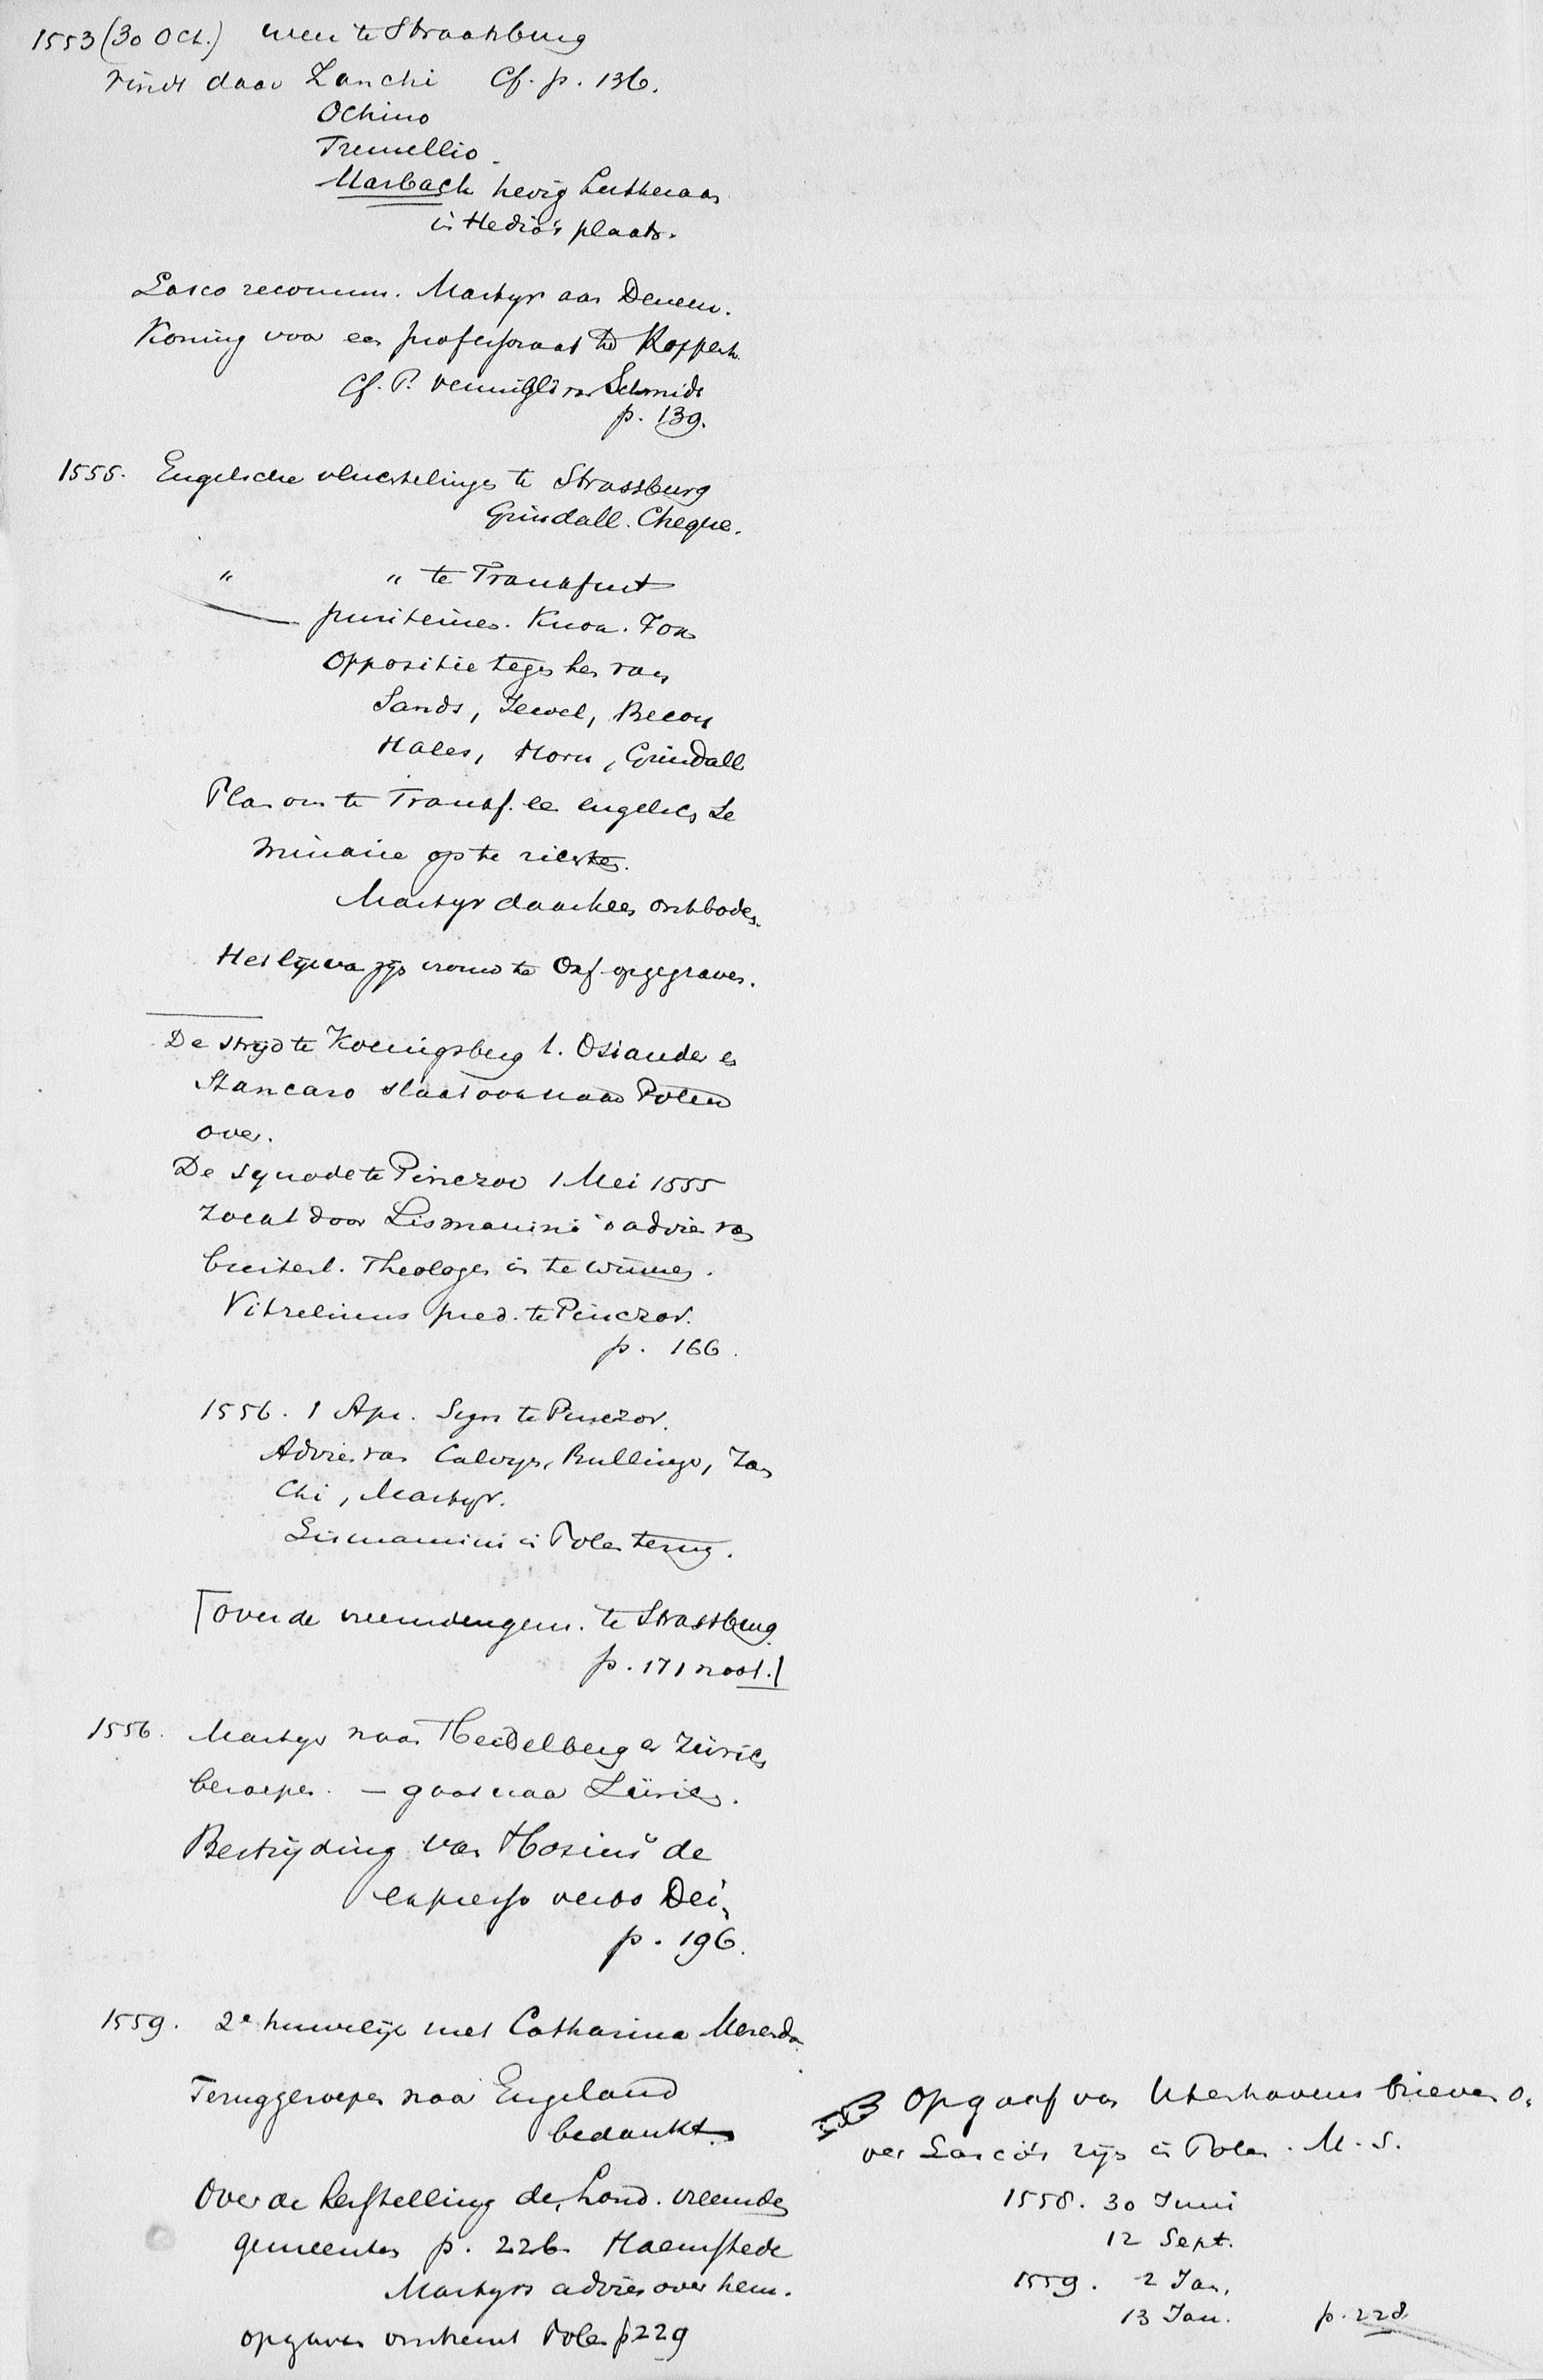 1553 (30 Oct.) weer te Straatsburg
vindt daar Zanchi Cf. p. 136.
Ochino
Tremellio.
Marbach hevig Lutheraan
in Hedio's plaats.
Lasco recomm. Martyr aan Deneem.
Koning voor een professoraat te Koppenh.
Cf. P. Vermigli van Schmidt
p. 139.
1555. Engelsche vluchtelingen te Strassburg
Grindall. Cheque.
" " te Frankfurt
puriteines. Knox. Fox
Oppositie tegen hen van
Sands, Jewel, Becon
Hales, Horn, Grindall
Plan om te Frankf. een engelsch Se
minarie op te richten.
Martyr daarheen ontboden.
Het lijk van zijn vrouw te Oxf. opgegraven.
De strijd te Koenigsberg t. Osiander en
Stancaro slaat ook naar Polen
over.
De synode te Pinczow 1 Mei 1555
zoekt door Lismanini 't advies van
buitenl. Theologen in te winnen.
Vitrelinus pred. te Pinczov.
p. 166.
1556. 1 Apr. Syn te Pinczov.
Advies van Calvijn, Bullinger, Zan
chi, Martyr.
Lismanini in Polen terug.
[over de vreemdengem. te Strassburg.
p. 171 noot.]
1556. Martyr naar Heidelberg en Zürich
beroepen. – gaat naar Zürich.
Bestrijding van Hosius' de
expresso verbo Dei,
p. 196.
1559. 2e huwelijk met Catharina Merenda
Teruggeroepen naar Engeland
bedankt.
Over de herstelling der Lond. vreemden
gemeenten p. 226. Haemstede
Martyrs advies over hem.
opgaven omtrent Polen p 229
Opgaaf van Utenhovens brieven o.
ver Lasco's zijn in Polen. M.S.
1558. 30 Juni
12 Sept.
1559. 2 Jan.
13 Jan. p. 228